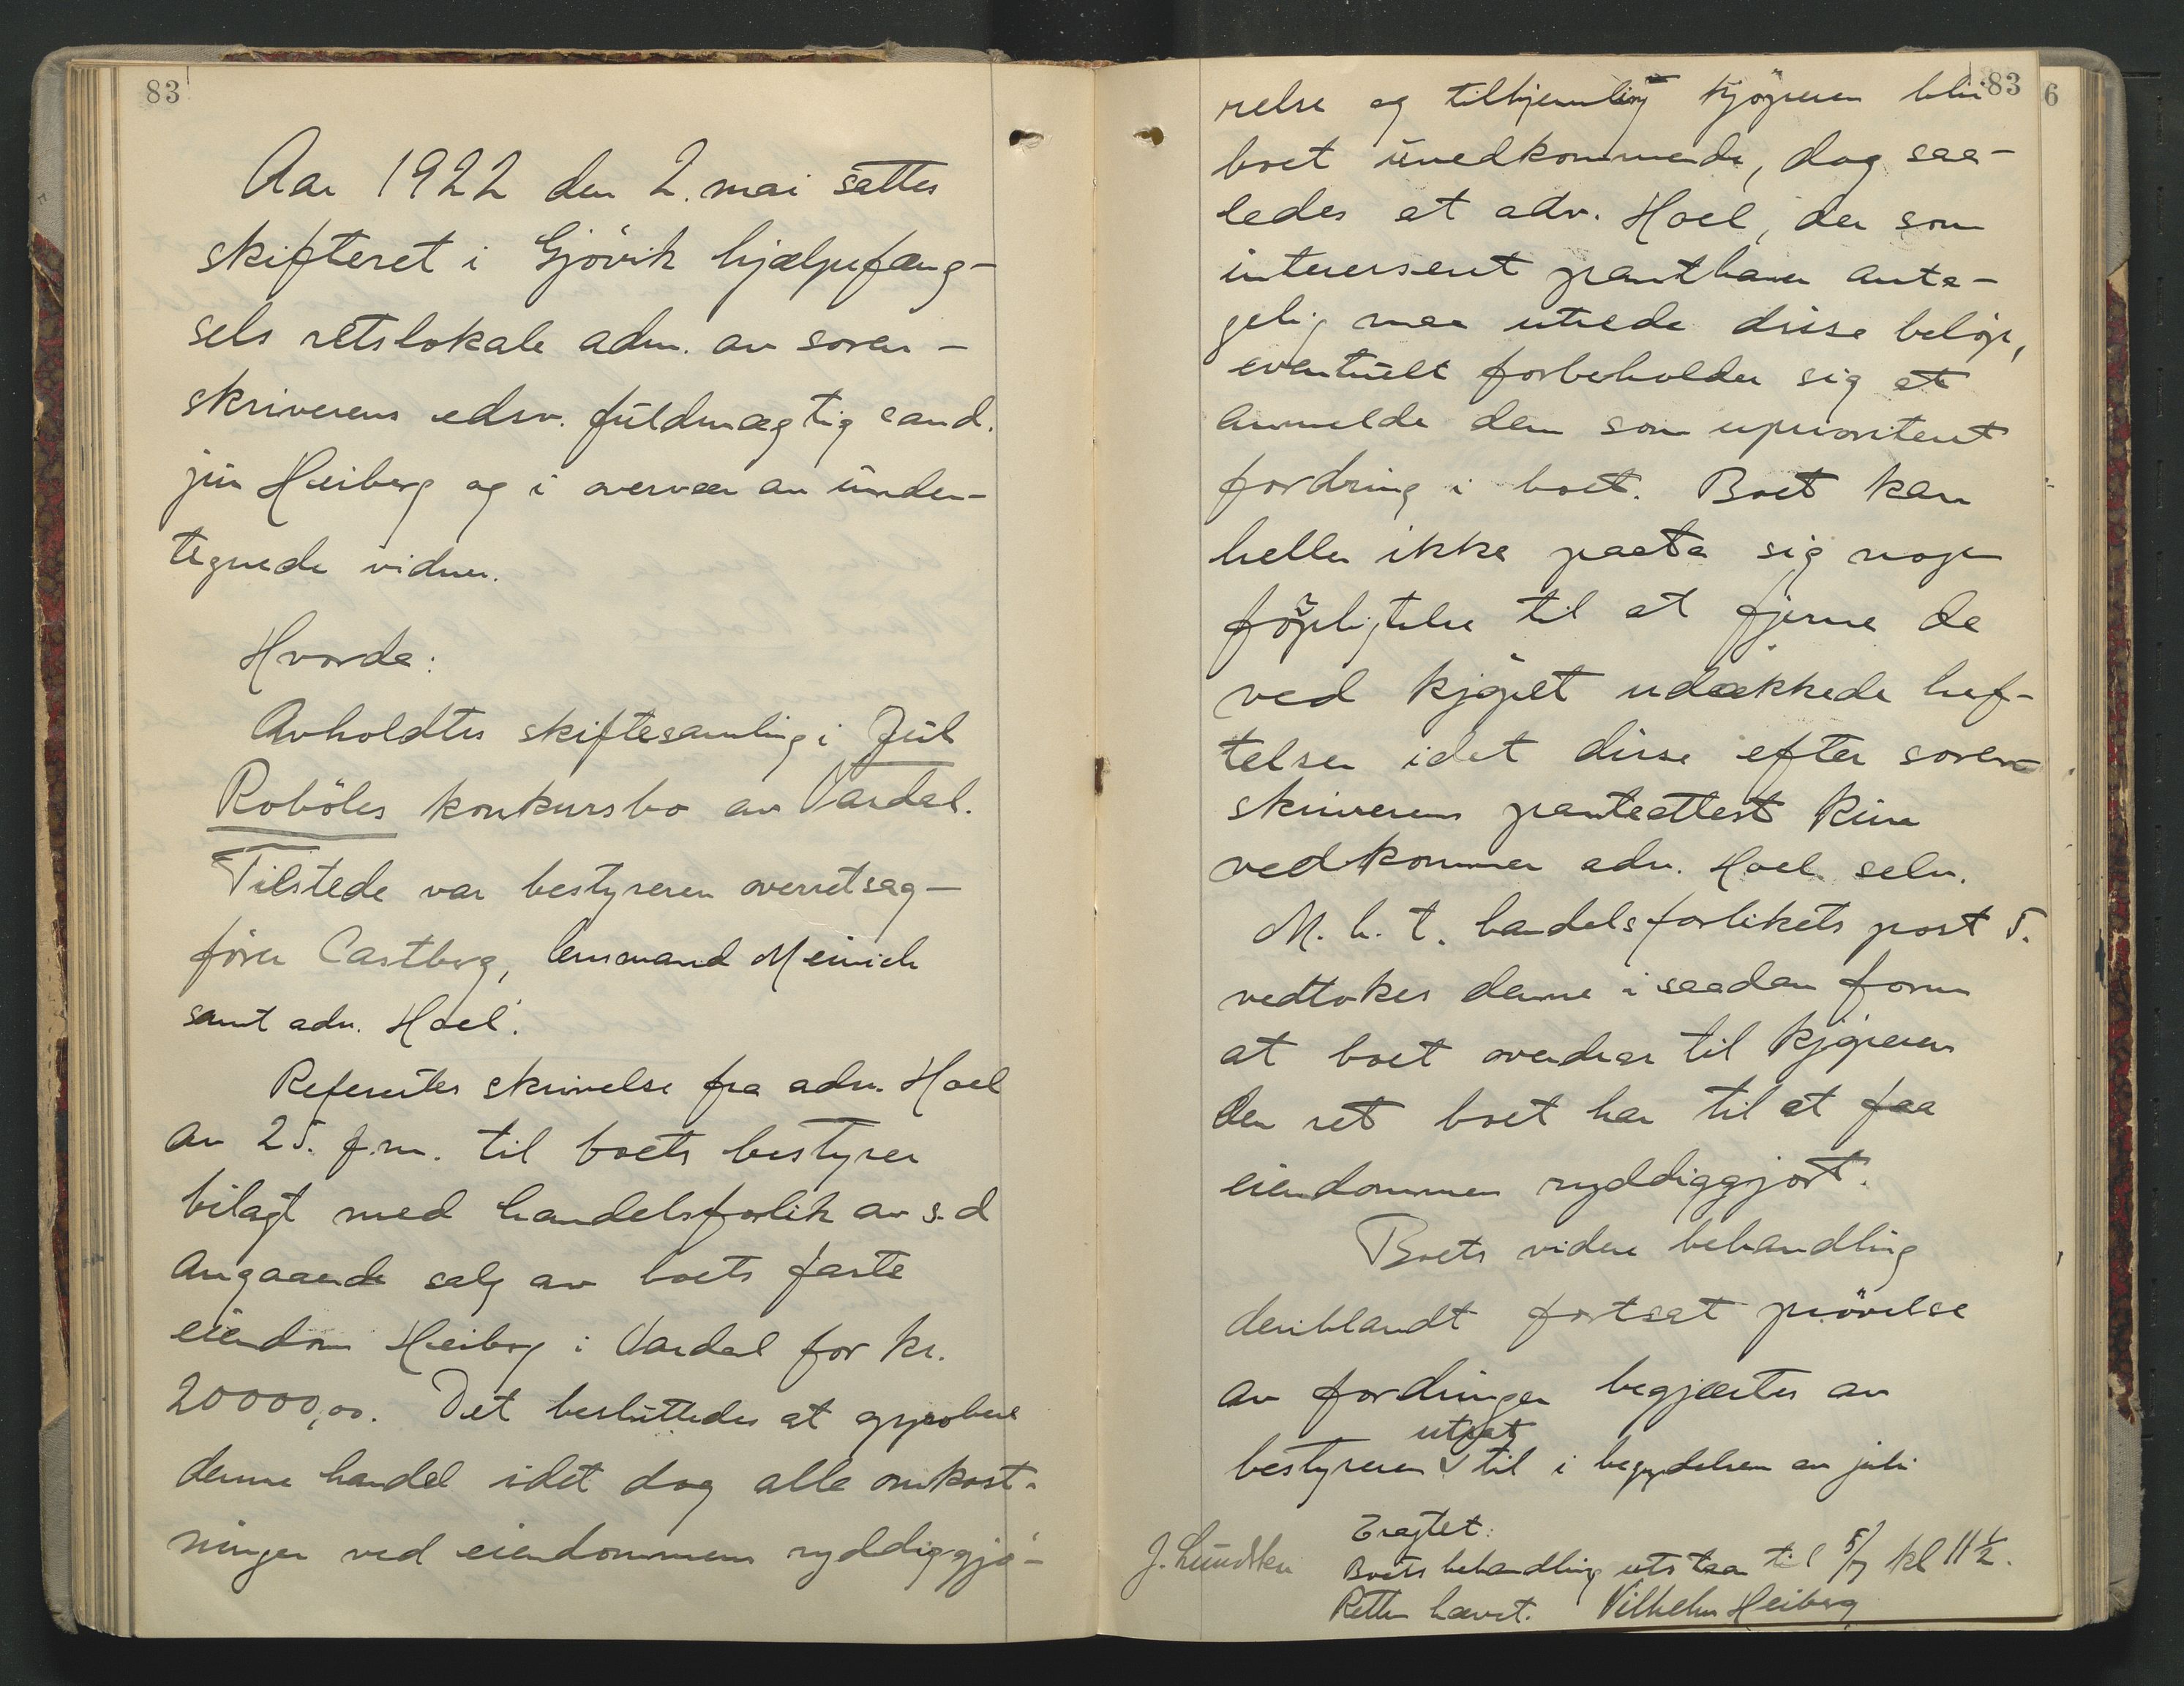 83
Aar 1922 den 2. mai sattes
skifteret i Gjövik hjælpefæng-
sels retslokale adm. av soren-
skriverens edsv. fuldmægtig cand.
jur Heiberg og i overvær av under-
tegnede vidner.
Hvorda:
Avholdtes skiftesamling i Jul
Roböles konkursbo av Vardal.
Tilstede var bestyreren overretsag-
förer Castberg, lensmand Meinich
samt adv. Hoel.
Refereertes skrivelse fra adv. Hoel
av 25. f.m. til boets bestyrer
bilagt med handelsforlik av s.d
angaaende salg av boets faste
eiendom Heiberg i Vardal for kr.
20000,00. Det besluttedes at approbere
denne handel idet dog alle omkost-
ninger ved eiendommens ryddiggjö-
83
6
relse og tilhjemling kjöperen blir
boet uvedkommende, dog saa-
ledes at adv. Hoel, der som
interessert panthaver anta-
gelig maa utrede disse belöp,
eventuelt forbeholder sig at
anmelde dem som uprioritert
fordring i boet. Boet kan
heller ikke paata sig nogen
forpligtelse til at fjerne de
ved kjöpet udækkede hef-
telser idet disse efter soren-
skriverens panteattest kun
vedkommer adv. Hoel selv.
M. h. t. handelsforlikets post 5.
vedtokes denne i saadan form
at boet overdrar til kjöperen
den ret boet har til at faa
eiendommen ryddiggjort.
Boets videre behandling
deriblandt fortsat prövelse
av fordringer begjærtes av
utsat
bestyreren til i begyndelsen av juli
Eragtet:
J. Lundsten Boets behandling utstaar til 5/7 kl 11 ½.
Retten hævet. Vilhelm Heiberg